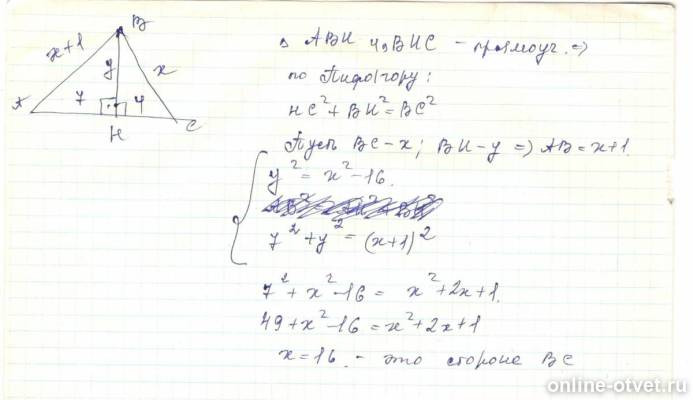 B
x+1
y
x
A
7
4
H
C
в ABH и BHC – прямоуг. ⇒
по Пифагору:
HC² + BH² = BC²
Пусть BC – x; BH – y ⇒ AB = x+1.
y² = x² – 16.
7² + y² = (x+1)²
7² + x² – 16 = x² + 2x + 1.
49 + x² – 16 = x² + 2x + 1
x = 16. – это сторона BC
online-otvet.ru